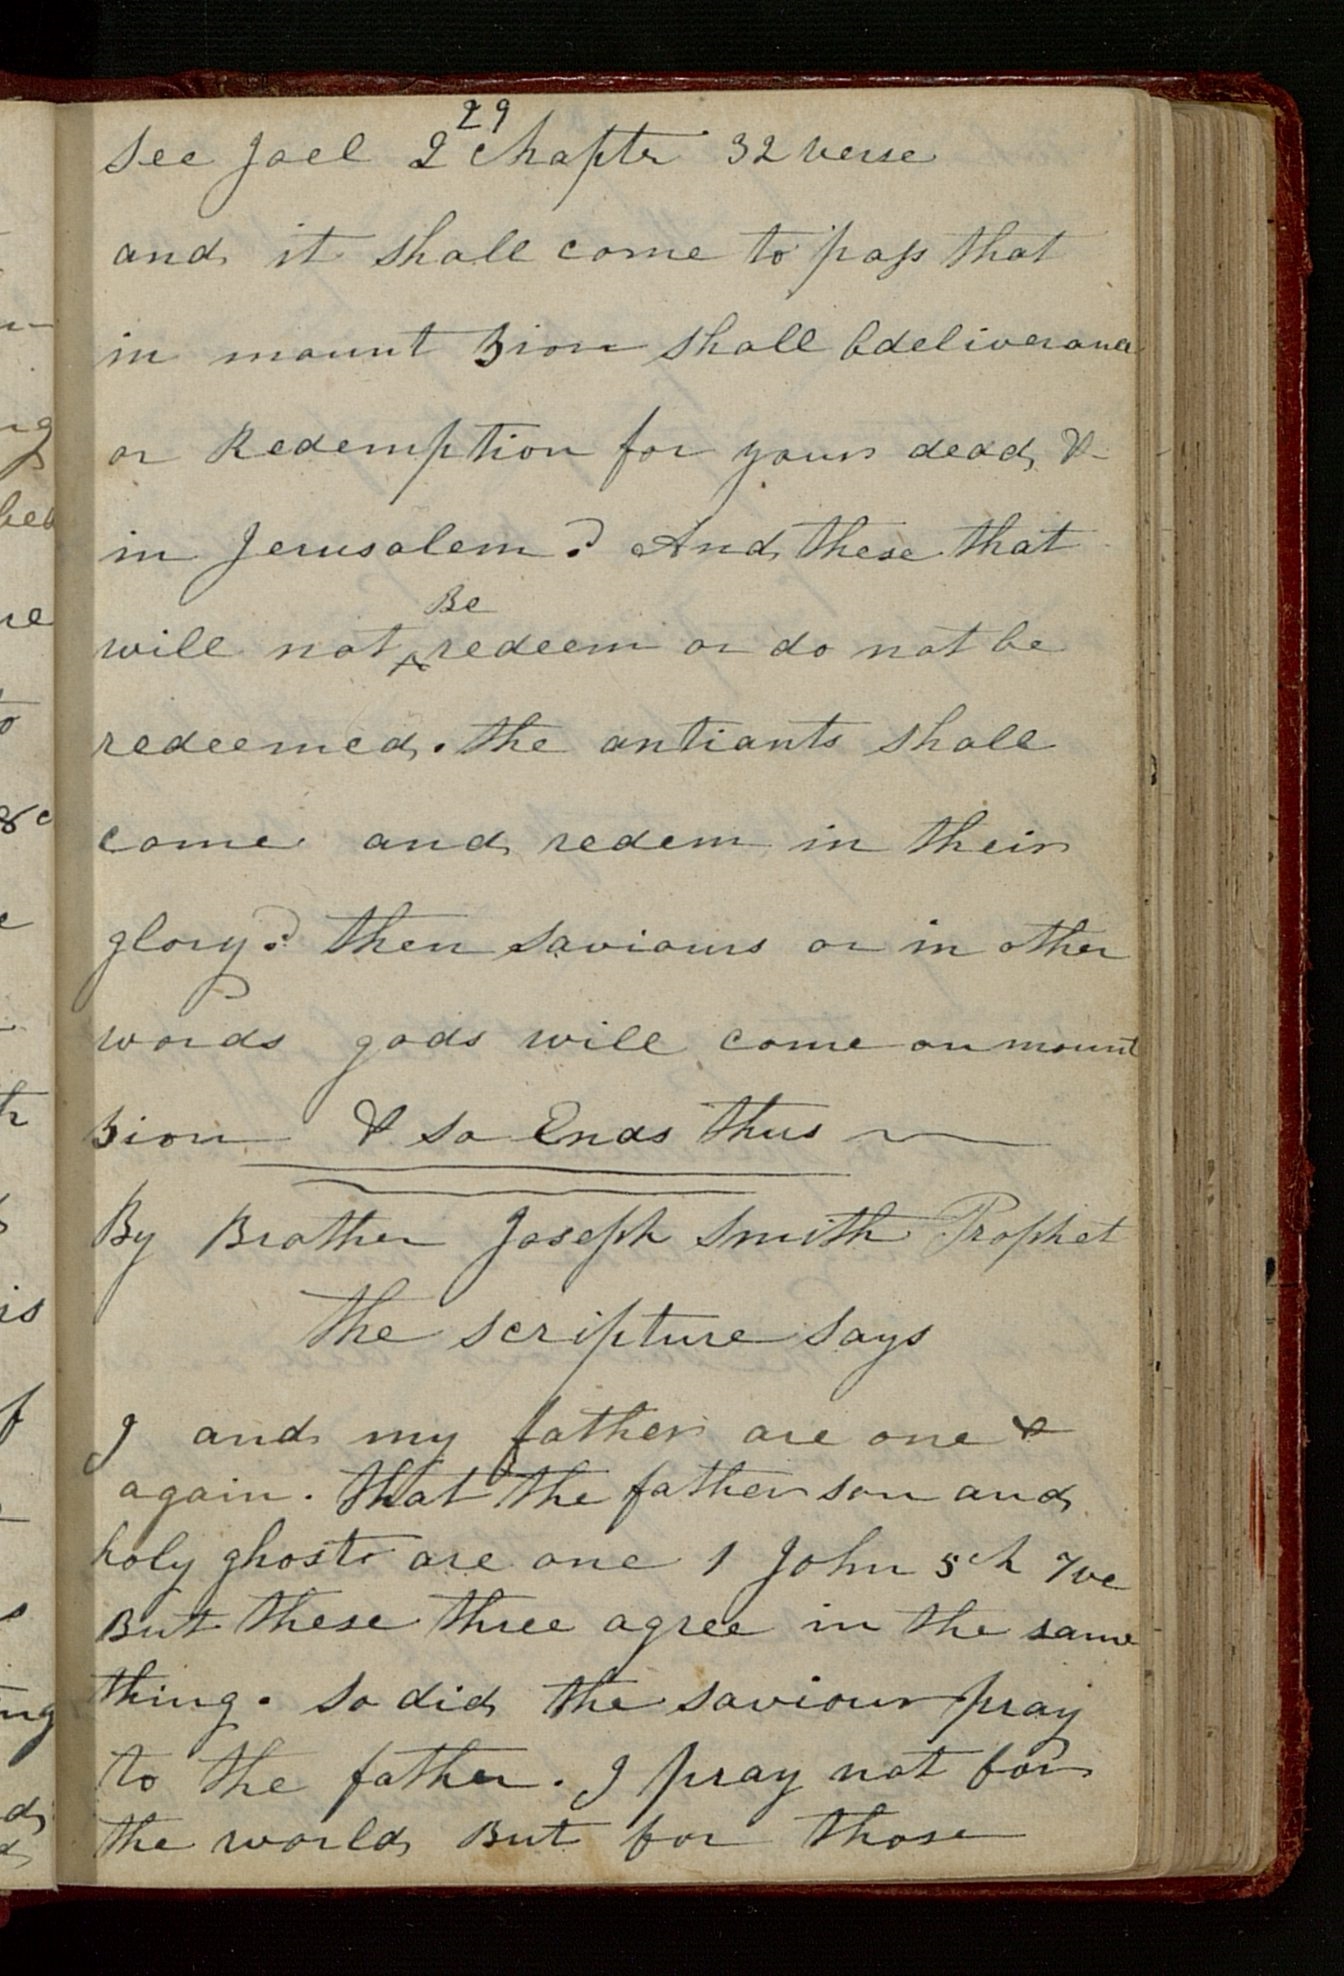 29
See Joel 2 chapter 32 verse
and it shall come to pass that
in mount Zion shall b deliverance
or Redemption for yours dead, &
in Jerusalem? And these that
Be
will not ^ redeem or do not be
redeemed. the antiants shall
come and redem in their
glory? then saviours or in other
words gods will come on mount
Zion & so Ends thus
By Brother Joseph Smith Prophet
the scripture says
I and my father are one &
again. that the father son and
holy ghost are one 1 John 5 ch 7 ve
But these three agree in the same
thing. so did the saviour pray
to the father. I pray not for
the world But for those